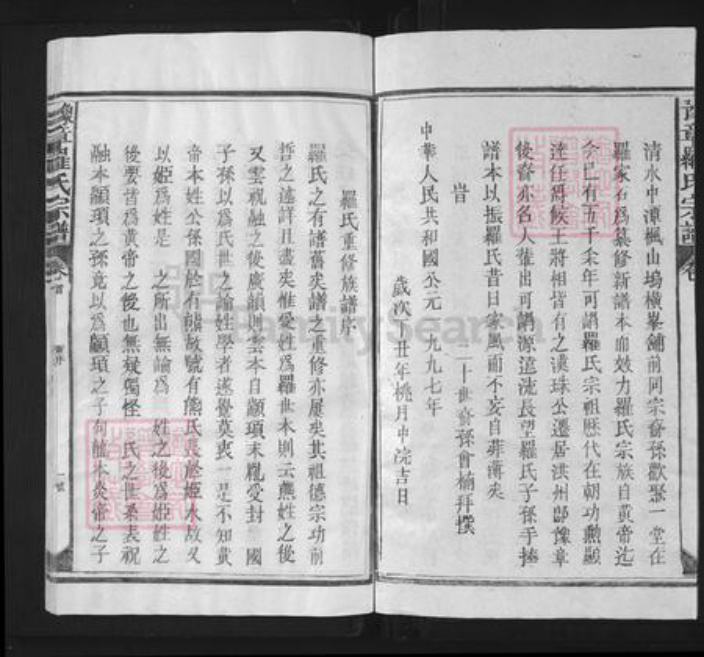 清水中潭楓山塢橫峯舖前同宗裔孫歡聚一堂在
羅家石爲纂修新譜本而效力羅氏宗族自黃帝迄
今已有五千余年可謂羅氏宗祖歷代在朝功勳顯
達任爵候王將相皆有之漢珠公遷居洪州即豫章
後裔亦名人輩出可謂源遠流長望羅氏子孫手捧
譜本以振羅氏昔日家風而不妄自菲薄矣
旹 二十世裔孫會楠拜撰
中華人民共和國公元一九九七年
歲次丁丑年桃月中浣吉日
豫章羅氏宗譜
卷
羅氏重修族譜序
羅氏之有譜舊矣譜之重修亦屢矣其祖德宗功前
哲之述詳且盡矣惟受姓爲羅世本則云熊姓之後
又雲祝融之後廣韻則雲本自顓頊末胤受封 國
子孫以爲氏世之論姓學者遂覺莫衷一是不知黃
帝本姓公孫國於有熊故號有熊氏長於姬水故又
以姬爲姓是 之所出無論爲 姓之後爲姬姓之
後要皆爲黃帝之後也無疑獨怪 氏之世系表祝
融本顓頊之孫竟以爲顓頊之子句 本炎帝之子
豫章羅氏宗譜
卷首
序
一號
FamilySearch